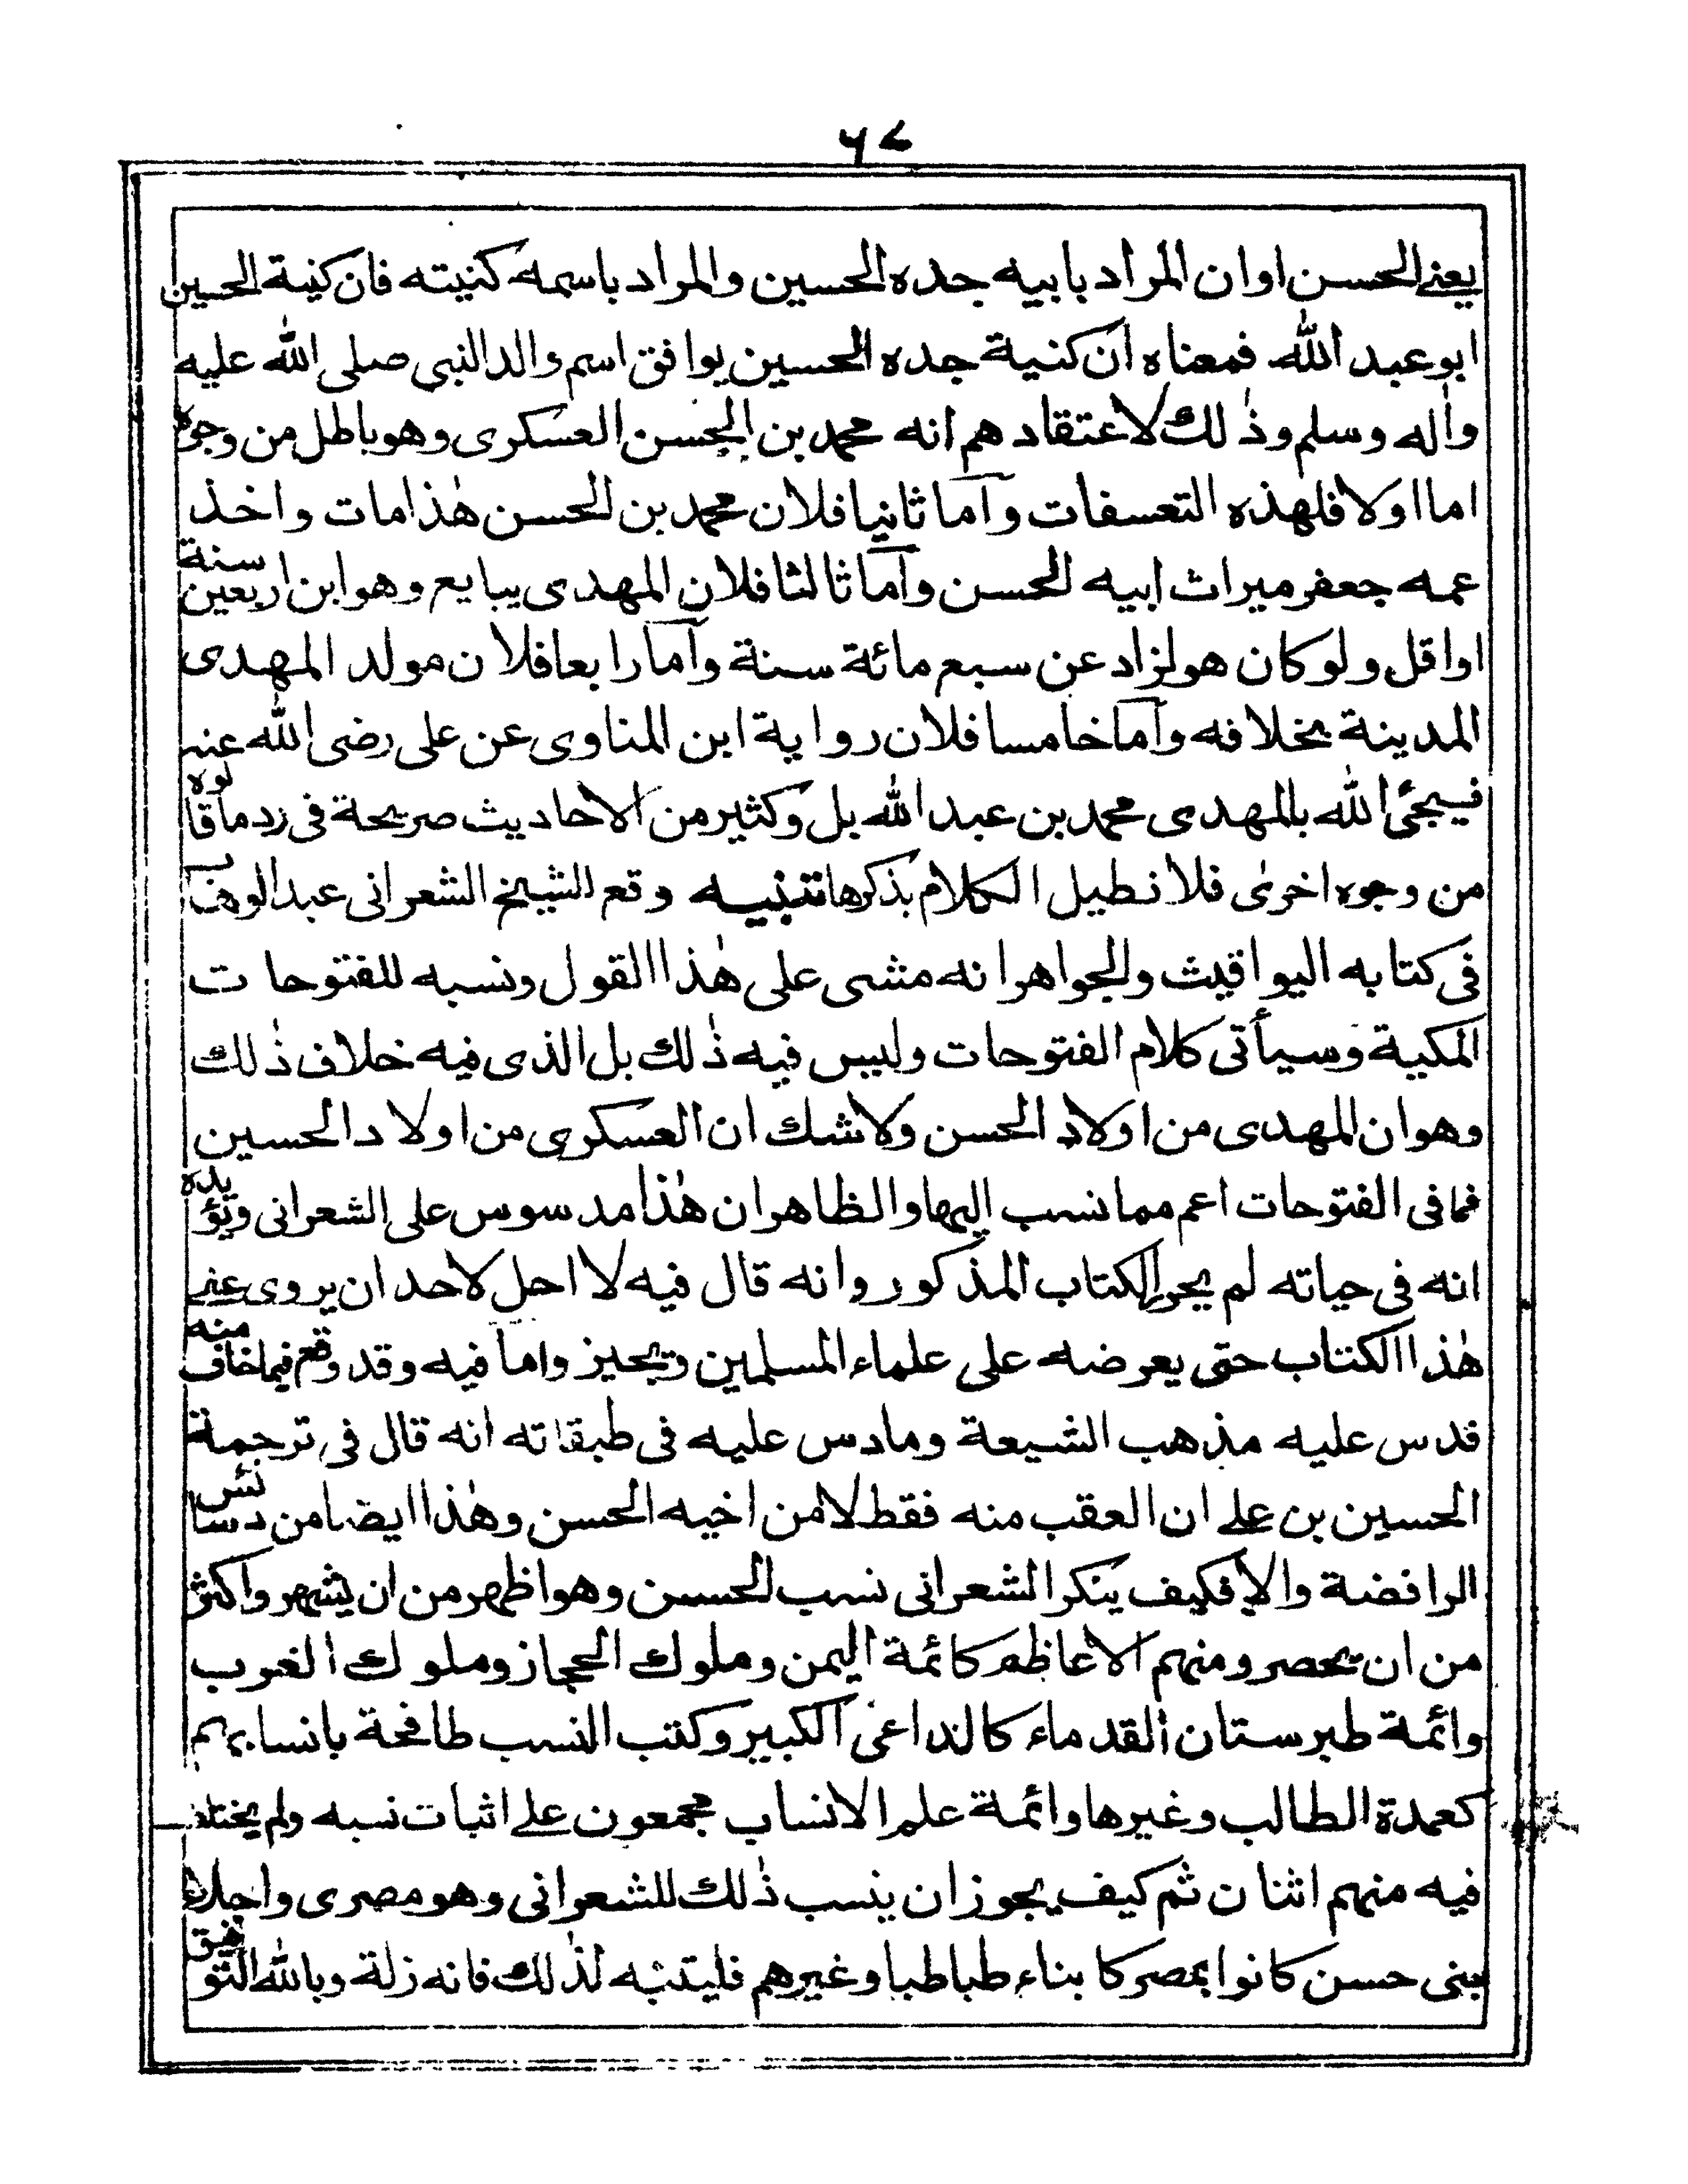 ٦٧
يعنى الحسن اوان المراد بابيه جده الحسين والمراد باسمه كنيته فان كنية الحسين
ابو عبد الله فمعناه ان كنية جده الحسين يوافق اسم والد النبي صلى الله عليه
واٰله وسلم وذٰلك لاعتقادهم انه محمد بن الحسن العسكرى وهو باطل من وجوه
اما اولا فلهذه التعسفات وآما ثانيا فلان محمد بن الحسن هٰذا مات واخذ
عمه جعفر ميراث ابيه الحسن وآما ثالثا فلان المهدى يبايع وهو ابن اربعين سنة
او اقل ولو كان هو لزاد عن سبع مائة سنة وآما رابعا فلان مولد المهدى
المدينة بخلافه وآما خامسا فلان رواية ابن المناوى عن على رضى الله عنه
فسيجئ الله بالمهدى محمد بن عبد الله بل وكثير من الاحاديث صريحة فى رد ما قالوه
من وجوه اخرىٰ فلا نطيل الكلام بذكرها تنبيه وقع للشيخ الشعرانى عبد الوهاب
فى كتابه اليواقيت والجواهر انه مشى على هٰذا القول ونسبه للفتوحات
المكية وسيأتى كلام الفتوحات وليس فيه ذٰلك بل الذى فيه خلاف ذٰلك
وهو ان المهدى من اولاد الحسن ولا شك ان العسكرى من اولاد الحسين
فما فى الفتوحات اعم مما نسب اليها والظاهر ان هٰذا مدسوس على الشعرانى ويؤيده
انه فى حياته لم يحرر الكتاب المذكور وانه قال فيه لا احل لاحد ان يروى عنى
هٰذا الكتاب حتى يعرضه على علماء المسلمين ويجيز واما فيه وقد وقع فيما خاف منه
فدس عليه مذهب الشيعة ومادس عليه فى طبقاته انه قال فى ترجمة
الحسين بن على ان العقب منه فقط لا من اخيه الحسن وهٰذا ايضا من دسائس
الرافضة والا فكيف ينكر الشعرانى نسب الحسن وهو اظهر من ان يشهر واكثر
من ان يحصر ومنهم الاعاظم كائمة اليمن وملوك الحجاز وملوك الغرب
وائمة طبرستان القدماء كالداعى الكبير وكتب النسب طافحة بانسابهم
كعمدة الطالب وغيرها وائمة علم الانساب مجمعون على اثبات نسبه ولم يختلف
فيه منهم اثنان ثم كيف يجوز ان ينسب ذٰلك للشعرانى وهو مصرى واجلاء
بنى حسن كانوا بمصر كابناء طباطبا وغيرهم فليتنبه لذٰلك فانه زلة وبالله التوفيق